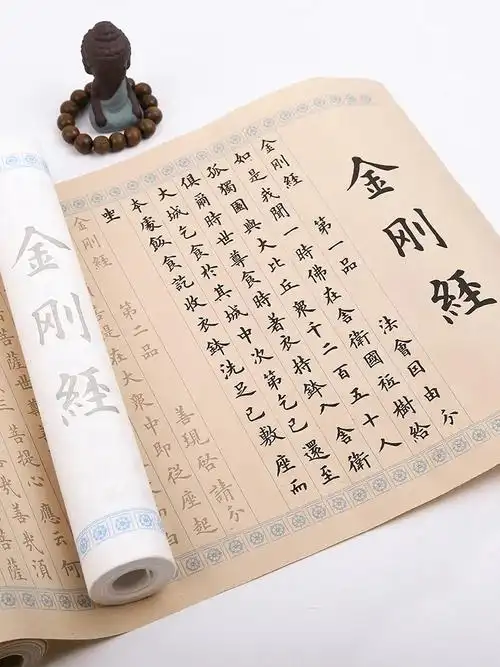 金剛經
金剛經 第一品 法會因由分
如是我聞一時佛在舍衛國祗樹給
孤獨園與大比丘衆千二百五十人
俱爾時世尊食時著衣持鉢入舍衛
大城乞食於其城中次第乞已還至
本處飯食訖收衣鉢洗足已敷座而
坐
金剛經 第二品 善現啓請分
菩提在大衆中即從座起
金剛經
菩薩世尊
應云何
三菩提心
善哉須
菩薩